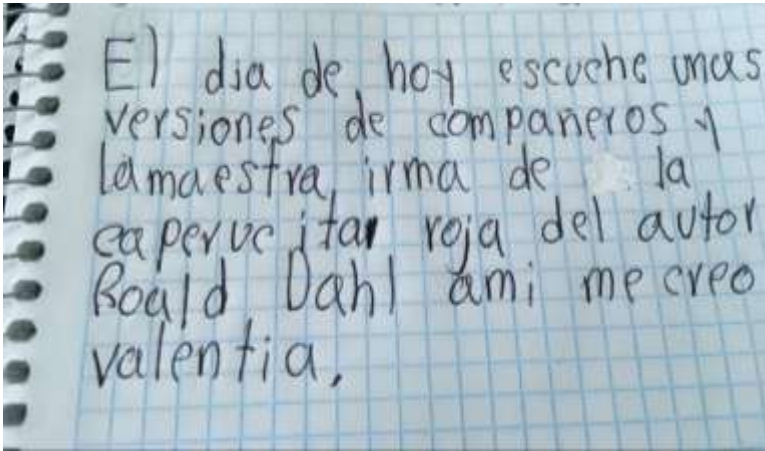 El dia de hoy escuche unas
versiones de companeros y
lamaestra irma de la
caperucitar roja del autor
Roald Dahl ami me creo
valentia.